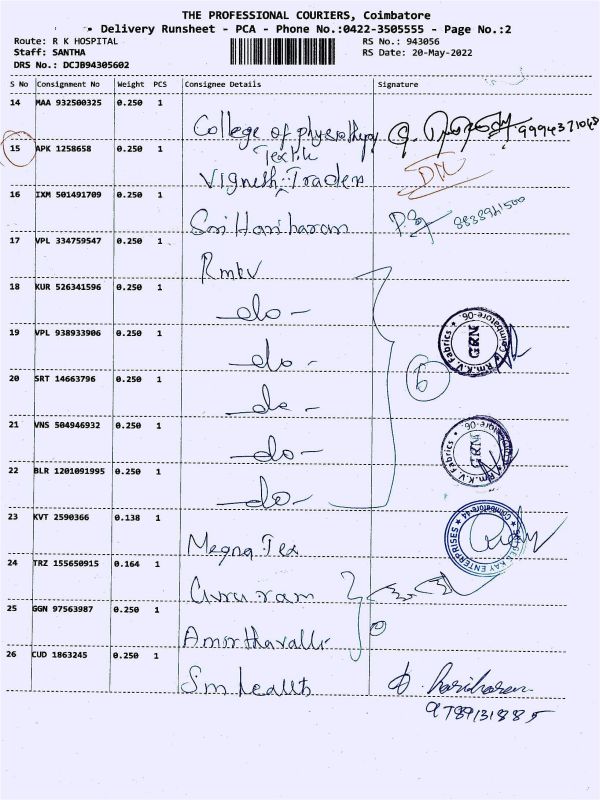 THE PROFESSIONAL COURIERS, Coimbatore
Delivery Runsheet - PCA - Phone No.:0422-3505555 - Page No.:2
Route: R K HOSPITAL RS No.: 943056
Staff: SANTHA RS Date: 20-May-2022
DRS No.: DCJB94305602
S No Consignment No Weight PCS Consignee Details Signature
14 MAA 932500325 0.250 1
College of physiotherapy 9994371060
15 APK 1258658 0.250 1
Textile
Vignesh Traders
16 IXM 501491709 0.250 1
Sri Hariharan 8838941500
17 VPL 334759547 0.250 1
Rmkv
18 KUR 526341596 0.250 1
-do-
19 VPL 938933906 0.250 1
-do-
20 SRT 14663796 0.250 1
-do-
6
21 VNS 504946932 0.250 1
-do-
22 BLR 1201091995 0.250 1
-do-
Rm.K.V. Fabrics Coimbatore-06.
GRN
Rm.K.V. Fabrics Coimbatore-06.
GRN
23 KVT 2590366 0.138 1
Megna Tex
KAY ENTERPRISES Coimbatore-44
24 TRZ 155650915 0.164 1
Guru ram
25 GGN 97563987 0.250 1
Amirthavalli
26 CUD 1863245 0.250 1
Sm health D. hariharan
9789131885